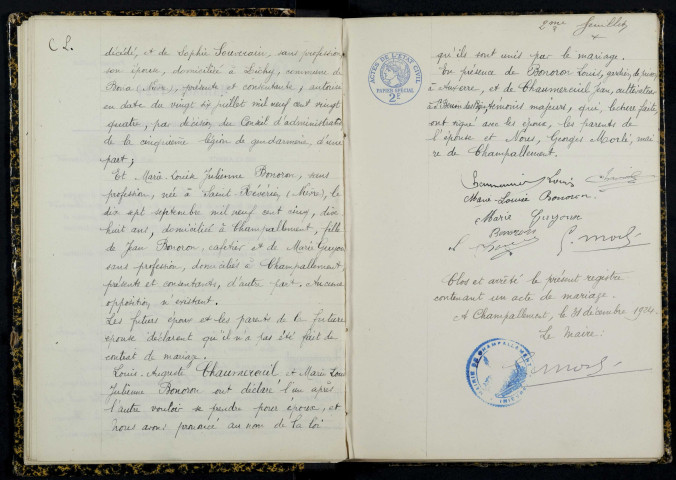 C L.
décédé, et de Sophie Souverain, sans profession,
son épouse, domiciliée à Lichy, commune de
Bona (Nièvre), présente et consentante; autorisé
en date du vingt six juillet mil neuf cent vingt
quatre, par décision du Conseil d'administration
de la cinquième légion de gendarmerie, d'une
part;
Et Marie Louise Julienne Bonoron, sans
profession, née à Saint Révérien, (Nièvre), le
dix sept septembre mil neuf cent cinq, dix
huit ans, domiciliée à Champallement, fille
de Jean Bonoron, cafetier et de Marie Guyon
sans profession, domiciliés à Champallement,
présents et consentants, d'autre part. Aucune
opposition n'existant.
Les futurs époux et les parents de la future
épouse déclarent qu'il n'a pas été fait de
contrat de mariage.
Louis-Auguste Chaumereuil et Marie Louise
Julienne Bonoron ont déclaré l'un après
l'autre vouloir se prendre pour époux, et
nous avons prononcé au nom de la loi
2me feuillet
ACTES DE L'ÉTAT CIVIL
PAPIER SPÉCIAL
2F
qu'ils sont unis par le mariage.
En présence de Bonoron Louis, gardien de
à Auxerre, et de Chaumereuil Jean, cultivateur
à témoins majeurs, qui, lecture faite,
ont signé avec les époux, les parents de
l'épouse et Nous, Georges Morlé, mai
re de Champallement.
Chaumereuil Louis
Marie-Louise Bonoron
Marie Guyon
Bonoron
G. Morlé
Clos et arrêté le présent registre
contenant un acte de mariage.
A Champallement, le 31 décembre 1924.
Le Maire:
MAIRIE DE CHAMPALLEMENT
(NIÈVRE)
Morlé